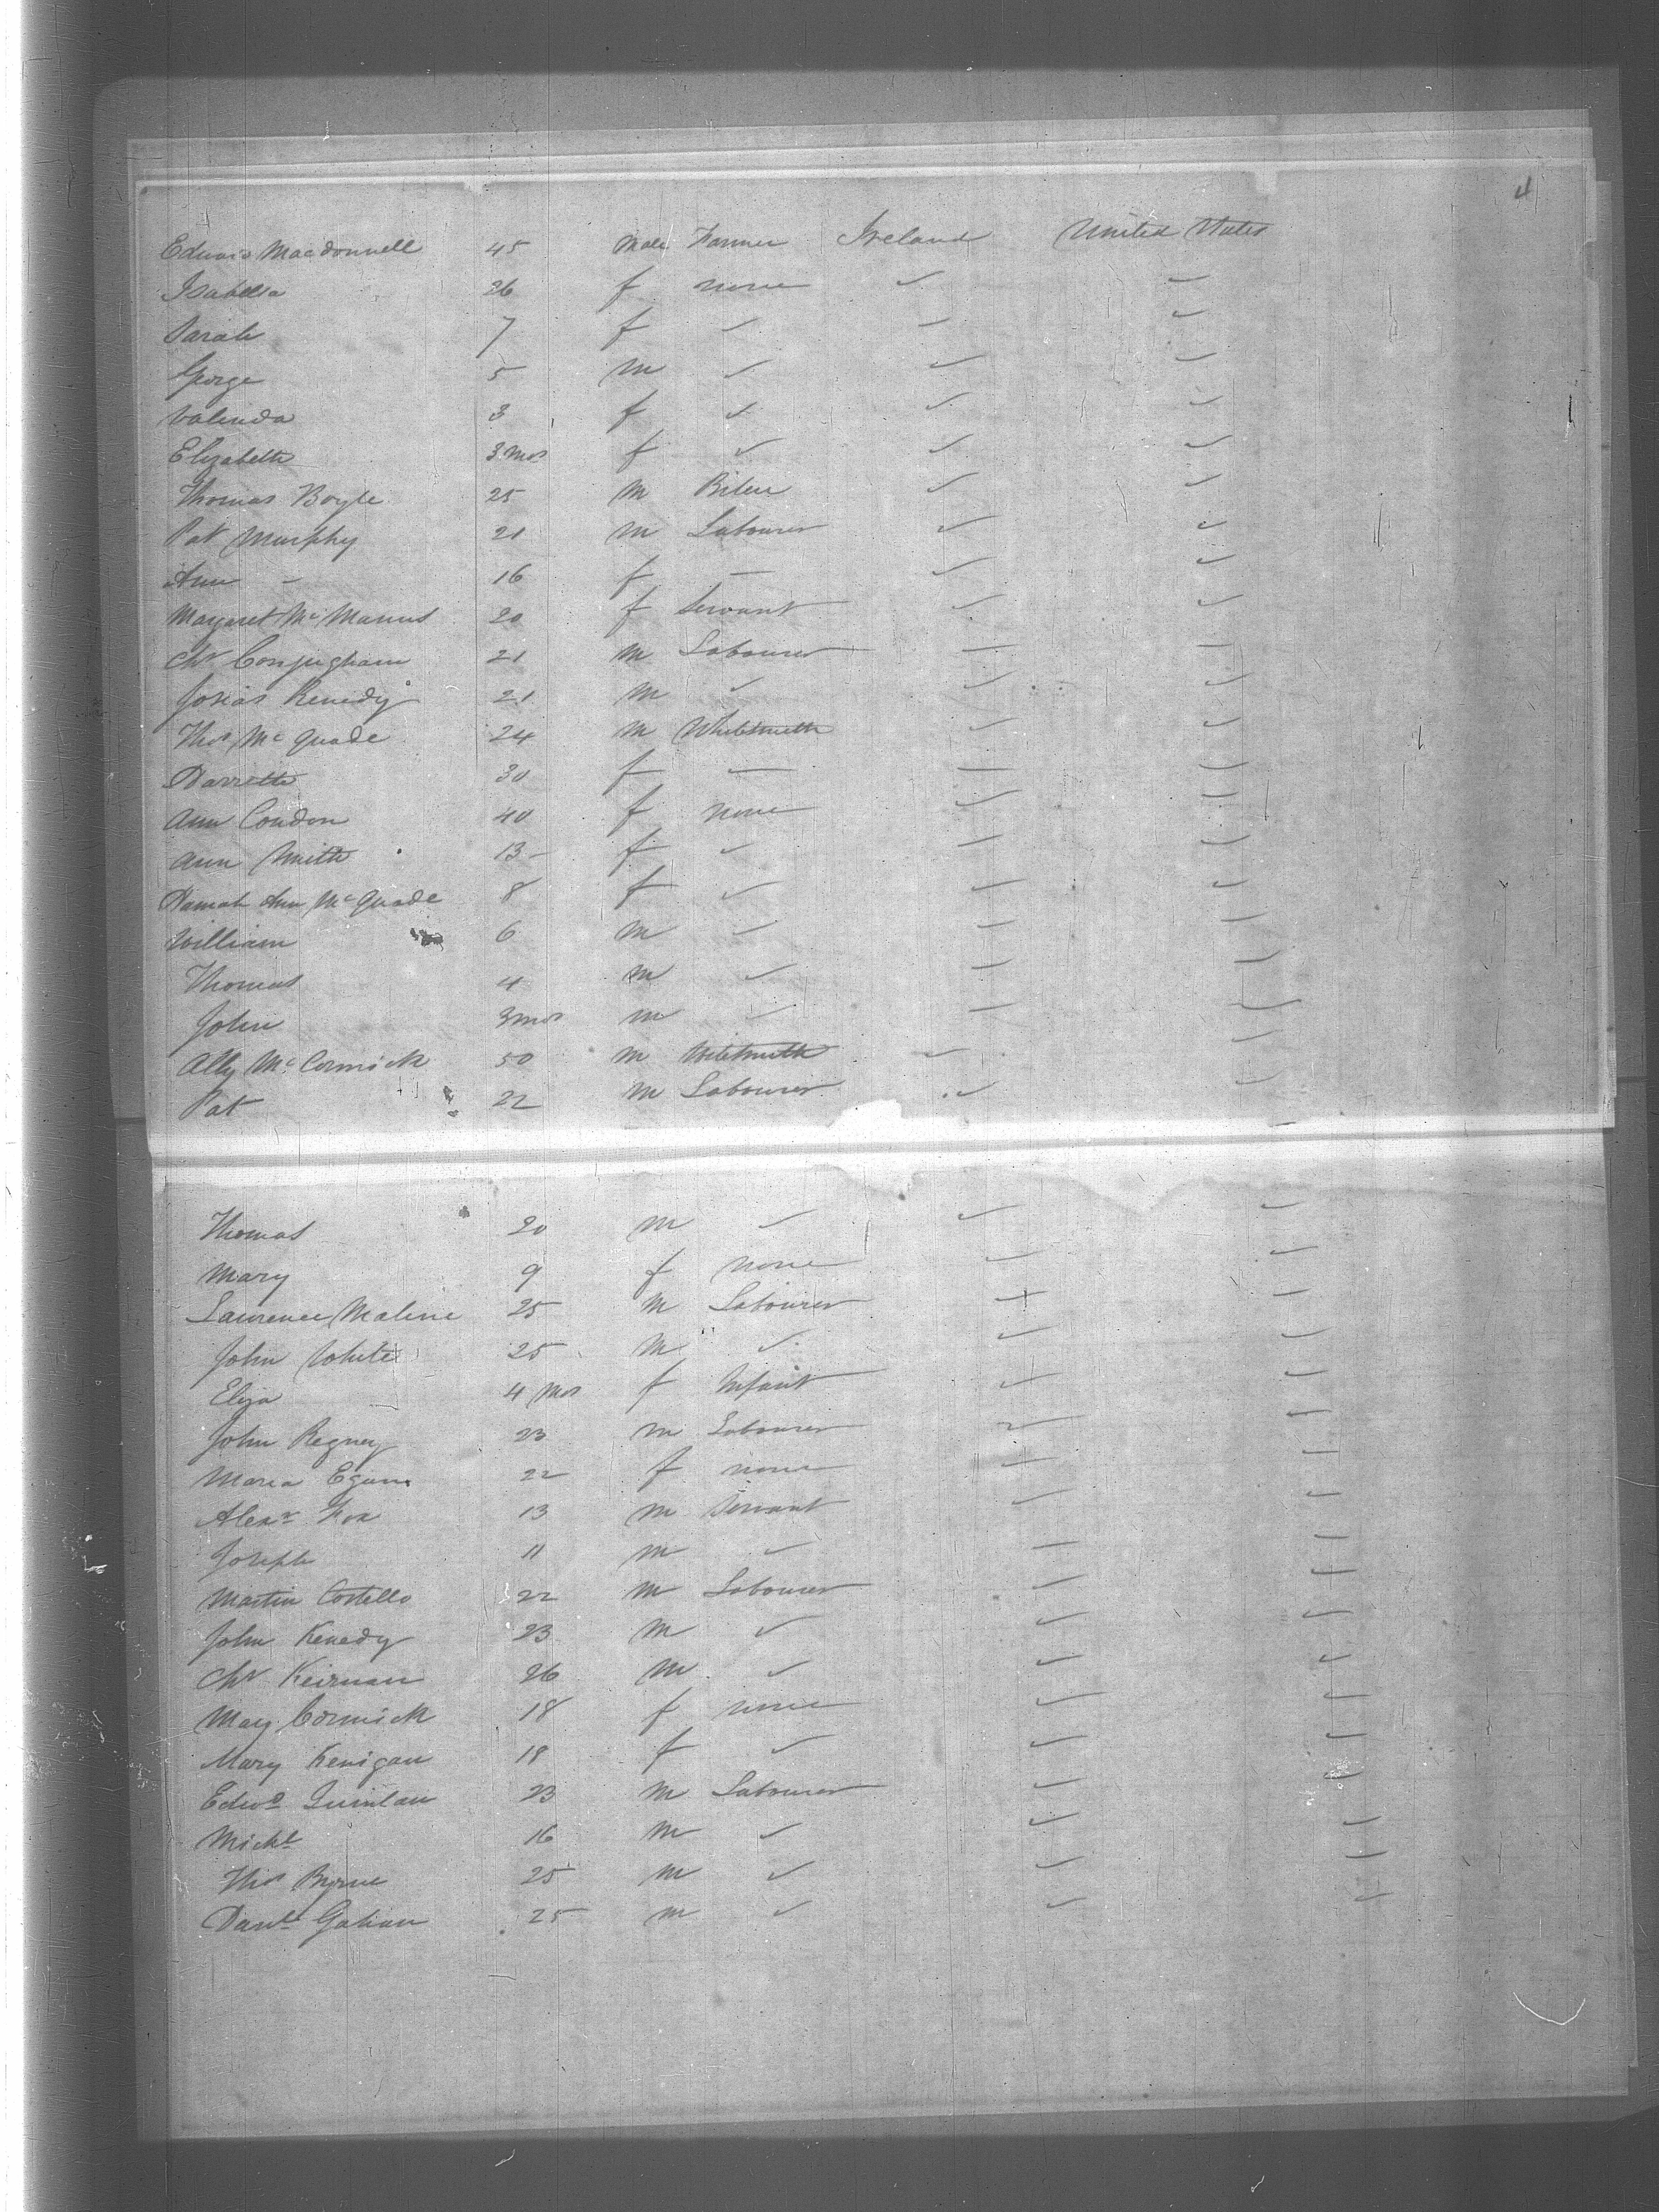 4
Edward Macdonnell 45 Male Farmer Ireland United States
Isabella 26 f none ✓ —
Sarah 7 f ✓ — ✓
George 5 m ✓ ✓ ✓
Valinda 3 f ✓ ✓ ✓
Elizabeth 3 Mos f ✓ ✓ ✓
Thomas Boyle 25 m ✓ ✓
Pat Murphy 21 m Labourer ✓ ✓
Ann — 16 f — ✓ ✓
Margaret McManus 20 f Servant ✓ ✓
Chr Conyngham 21 m Labourer — —
Josias Kenedy 21 m ✓ ✓ ✓
Thos McQuade 24 m Whitesmith ✓ ✓
Harrette 30 f — — —
Ann Condon 40 f none ✓ —
Ann Smith 13 f ✓ — ✓
Hanah Ann McQuade 8 f ✓ — ✓
William 6 m ✓ — —
Thomas 4 m ✓ — —
John 3 mos m ✓ — ✓
Ally McCormick 50 m Whitesmith ✓ ✓
Pat 22 m Labourer ✓ ✓
Thomas 20 m ✓ ✓ ✓
Mary 9 f none — ✓
Laurence Malone 25 m Labourer — —
John White 25 m ✓ ✓ —
Eliza 4 Mos f Infant ✓ —
John Regney 23 m Labourer ✓ —
Maria Egan 22 f none — —
Alexr Fox 13 m Servant ✓ —
Joseph 11 m ✓ — —
Martin Costello 22 m Labourer — —
John Kenedy 23 m ✓ ✓ ✓
Chr Keirnan 26 m ✓ ✓ ✓
Mary Cormick 18 f none ✓ —
Mary Kenigan 18 f ✓ ✓ —
Edwd Quinlan 23 m Labourer ✓ ✓
Michl 16 m ✓ ✓ ✓
Thos Byrne 25 m ✓ ✓ —
Danl 25 m ✓ ✓ ✓